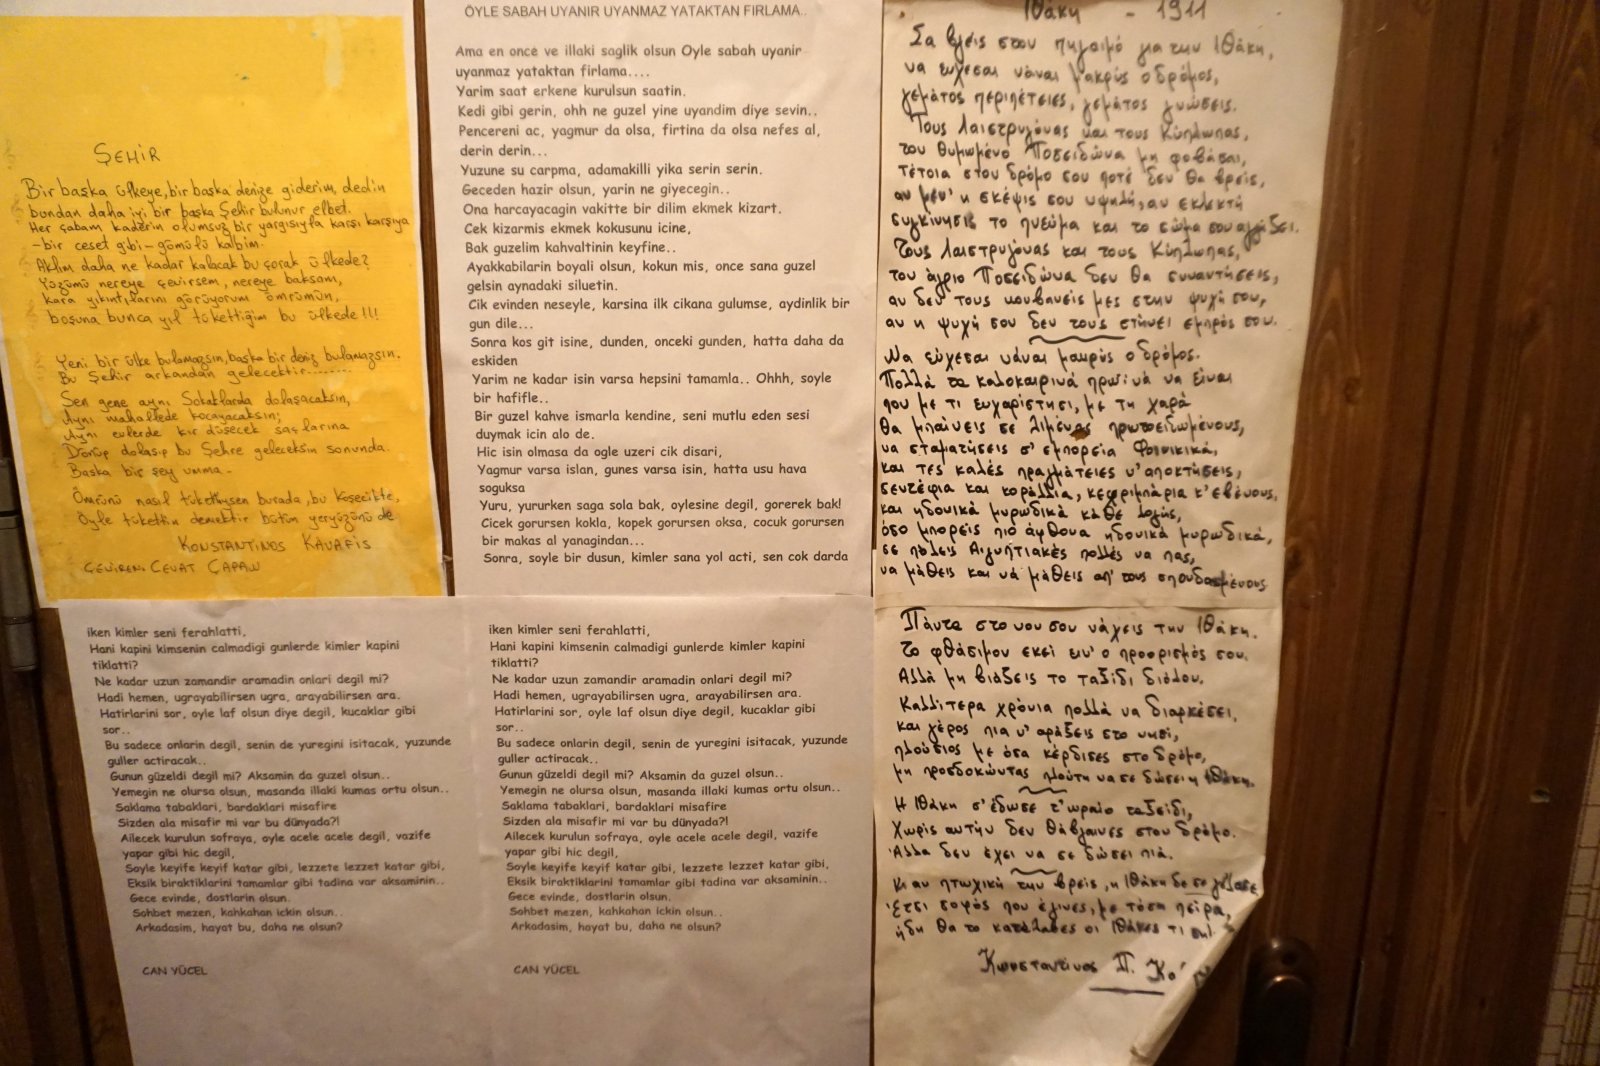 ŞEHİR
Bir başka ülkeye, bir başka denize giderim, dedin
bundan daha iyi bir başka şehir bulunur elbet.
Her çabam kaderin olumsuz bir yargısıyla karşı karşıya
-bir ceset gibi- gömülü kalbim.
Aklım daha ne kadar kalacak bu çorak ülkede?
Yüzümü nereye çevirsem, nereye baksam,
kara yıkıntılarını görüyorum ömrümün,
boşuna bunca yıl tükettiğim bu ülkede!!!
Yeni bir ülke bulamazsın, başka bir deniz bulamazsın.
Bu Şehir arkandan gelecektir........
Sen gene aynı Sokaklarda dolaşacaksın,
Aynı mahallede kocayacaksın;
Aynı evlerde kır düşecek saçlarına
Dönüp dolaşıp bu Şehre geleceksin sonunda.
Başka bir şey umma-
Ömrünü nasıl tükettiysen burada, bu Köşecikte,
Öyle tükettin demektir bütün yeryüzünü de
KONSTANTINOS KAVAFİS
ÇEVİREN: CEVAT ÇAPAN
ÖYLE SABAH UYANIR UYANMAZ YATAKTAN FIRLAMA..
Ama en once ve illaki saglik olsun Oyle sabah uyanir
uyanmaz yataktan firlama....
Yarim saat erkene kurulsun saatin.
Kedi gibi gerin, ohh ne guzel yine uyandim diye sevin..
Pencereni ac, yagmur da olsa, firtina da olsa nefes al,
derin derin...
Yuzune su carpma, adamakilli yika serin serin.
Geceden hazir olsun, yarin ne giyecegin..
Ona harcayacagin vakitte bir dilim ekmek kizart.
Cek kizarmis ekmek kokusunu icine,
Bak guzelim kahvaltinin keyfine..
Ayakkabilarin boyali olsun, kokun mis, once sana guzel
gelsin aynadaki siluetin.
Cik evinden neseyle, karsina ilk cikana gulumse, aydinlik bir
gun dile...
Sonra kos git isine, dunden, onceki gunden, hatta daha da
eskiden
Yarim ne kadar isin varsa hepsini tamamla.. Ohhh, soyle
bir hafifle..
Bir guzel kahve ismarla kendine, seni mutlu eden sesi
duymak icin alo de.
Hic isin olmasa da ogle uzeri cik disari,
Yagmur varsa islan, gunes varsa isin, hatta usu hava
soguksa
Yuru, yururken saga sola bak, oylesine degil, gorerek bak!
Cicek gorursen kokla, kopek gorursen oksa, cocuk gorursen
bir makas al yanagindan...
Sonra, soyle bir dusun, kimler sana yol acti, sen cok darda
iken kimler seni ferahlatti,
Hani kapini kimsenin calmadigi gunlerde kimler kapini
tiklatti?
Ne kadar uzun zamandir aramadin onlari degil mi?
Hadi hemen, ugrayabilirsen ugra, arayabilirsen ara.
Hatirlarini sor, oyle laf olsun diye degil, kucaklar gibi
sor..
Bu sadece onlarin degil, senin de yuregini isitacak, yuzunde
guller actiracak..
Gunun güzeldi degil mi? Aksamin da guzel olsun..
Yemegin ne olursa olsun, masanda illaki kumas ortu olsun..
Saklama tabaklari, bardaklari misafire
Sizden ala misafir mi var bu dünyada?!
Ailecek kurulun sofraya, oyle acele acele degil, vazife
yapar gibi hic degil,
Soyle keyife keyif katar gibi, lezzete lezzet katar gibi,
Eksik biraktiklarini tamamlar gibi tadina var aksaminin..
Gece evinde, dostlarin olsun.
Sohbet mezen, kahkahan ickin olsun..
Arkadasim, hayat bu, daha ne olsun?
CAN YÜCEL
iken kimler seni ferahlatti,
Hani kapini kimsenin calmadigi gunlerde kimler kapini
tiklatti?
Ne kadar uzun zamandir aramadin onlari degil mi?
Hadi hemen, ugrayabilirsen ugra, arayabilirsen ara.
Hatirlarini sor, oyle laf olsun diye degil, kucaklar gibi
sor..
Bu sadece onlarin degil, senin de yuregini isitacak, yuzunde
guller actiracak..
Gunun güzeldi degil mi? Aksamin da guzel olsun..
Yemegin ne olursa olsun, masanda illaki kumas ortu olsun..
Saklama tabaklari, bardaklari misafire
Sizden ala misafir mi var bu dünyada?!
Ailecek kurulun sofraya, oyle acele acele degil, vazife
yapar gibi hic degil,
Soyle keyife keyif katar gibi, lezzete lezzet katar gibi,
Eksik biraktiklarini tamamlar gibi tadina var aksaminin..
Gece evinde, dostlarin olsun.
Sohbet mezen, kahkahan ickin olsun..
Arkadasim, hayat bu, daha ne olsun?
CAN YÜCEL
Ιθάκη - 1911
Σα βγεις στον πηγαιμό για την Ιθάκη,
να εύχεσαι νάναι μακρύς ο δρόμος,
γεμάτος περιπέτειες, γεμάτος γνώσεις.
Τους Λαιστρυγόνας και τους Κύκλωπας,
τον θυμωμένο Ποσειδώνα μη φοβάσαι,
τέτοια στον δρόμο σου ποτέ δεν θα βρεις,
αν μέν' η σκέψις σου υψηλή, αν εκλεκτή
συγκίνησις το πνεύμα και το σώμα σου αγγίζει.
Τους Λαιστρυγόνας και τους Κύκλωπας,
τον άγριο Ποσειδώνα δεν θα συναντήσεις,
αν δεν τους κουβανείς μες στην ψυχή σου,
αν η ψυχή σου δεν τους στήνει εμπρός σου.
Να εύχεσαι νάναι μακρύς ο δρόμος.
Πολλά τα καλοκαιρινά πρωϊνά να είναι
που με τι ευχαρίστησι, με τη χαρά
θα μπαίνεις σε λιμένας πρωτοειδωμένους,
να σταματήσεις σ' εμπορεία Φοινικικά,
και τες καλές πραγμάτειες ν' αποκτήσεις,
σεντέφια και κοράλλια, κεχριμπάρια κ' εβένους,
και ηδονικά μυρωδικά κάθε λογής,
όσο μπορείς πιό άφθονα ηδονικά μυρωδικά,
σε πόλεις Αιγυπτιακές πολλές να πας,
να μάθεις και νά μάθεις απ' τους σπουδασμένους
Πάντα στο νου σου νάχεις την Ιθάκη.
Το φθάσιμον εκεί ειν' ο προορισμός σου.
Αλλά μη βιάζεις το ταξίδι διόλου.
Καλλίτερα χρόνια πολλά να διαρκέσει,
και γέρος πια ν' αράξεις στο νησί,
πλούσιος με όσα κέρδισες στο δρόμο,
μη προσδοκώντας πλούτη να σε δώσει η Ιθάκη.
Η Ιθάκη σ' έδωσε τ' ωραίο ταξείδι,
Χωρίς αυτήν δεν θάβγαινες στον δρόμο.
Άλλα δεν έχει να σε δώσει πιά.
Κι αν πτωχική την βρεις, η Ιθάκη δε σε γέλασε
έτσι σοφός που έγινες, με τόση πείρα,
ήδη θα το κατάλαβες οι Ιθάκες τι
Κωνσταντίνος Π.